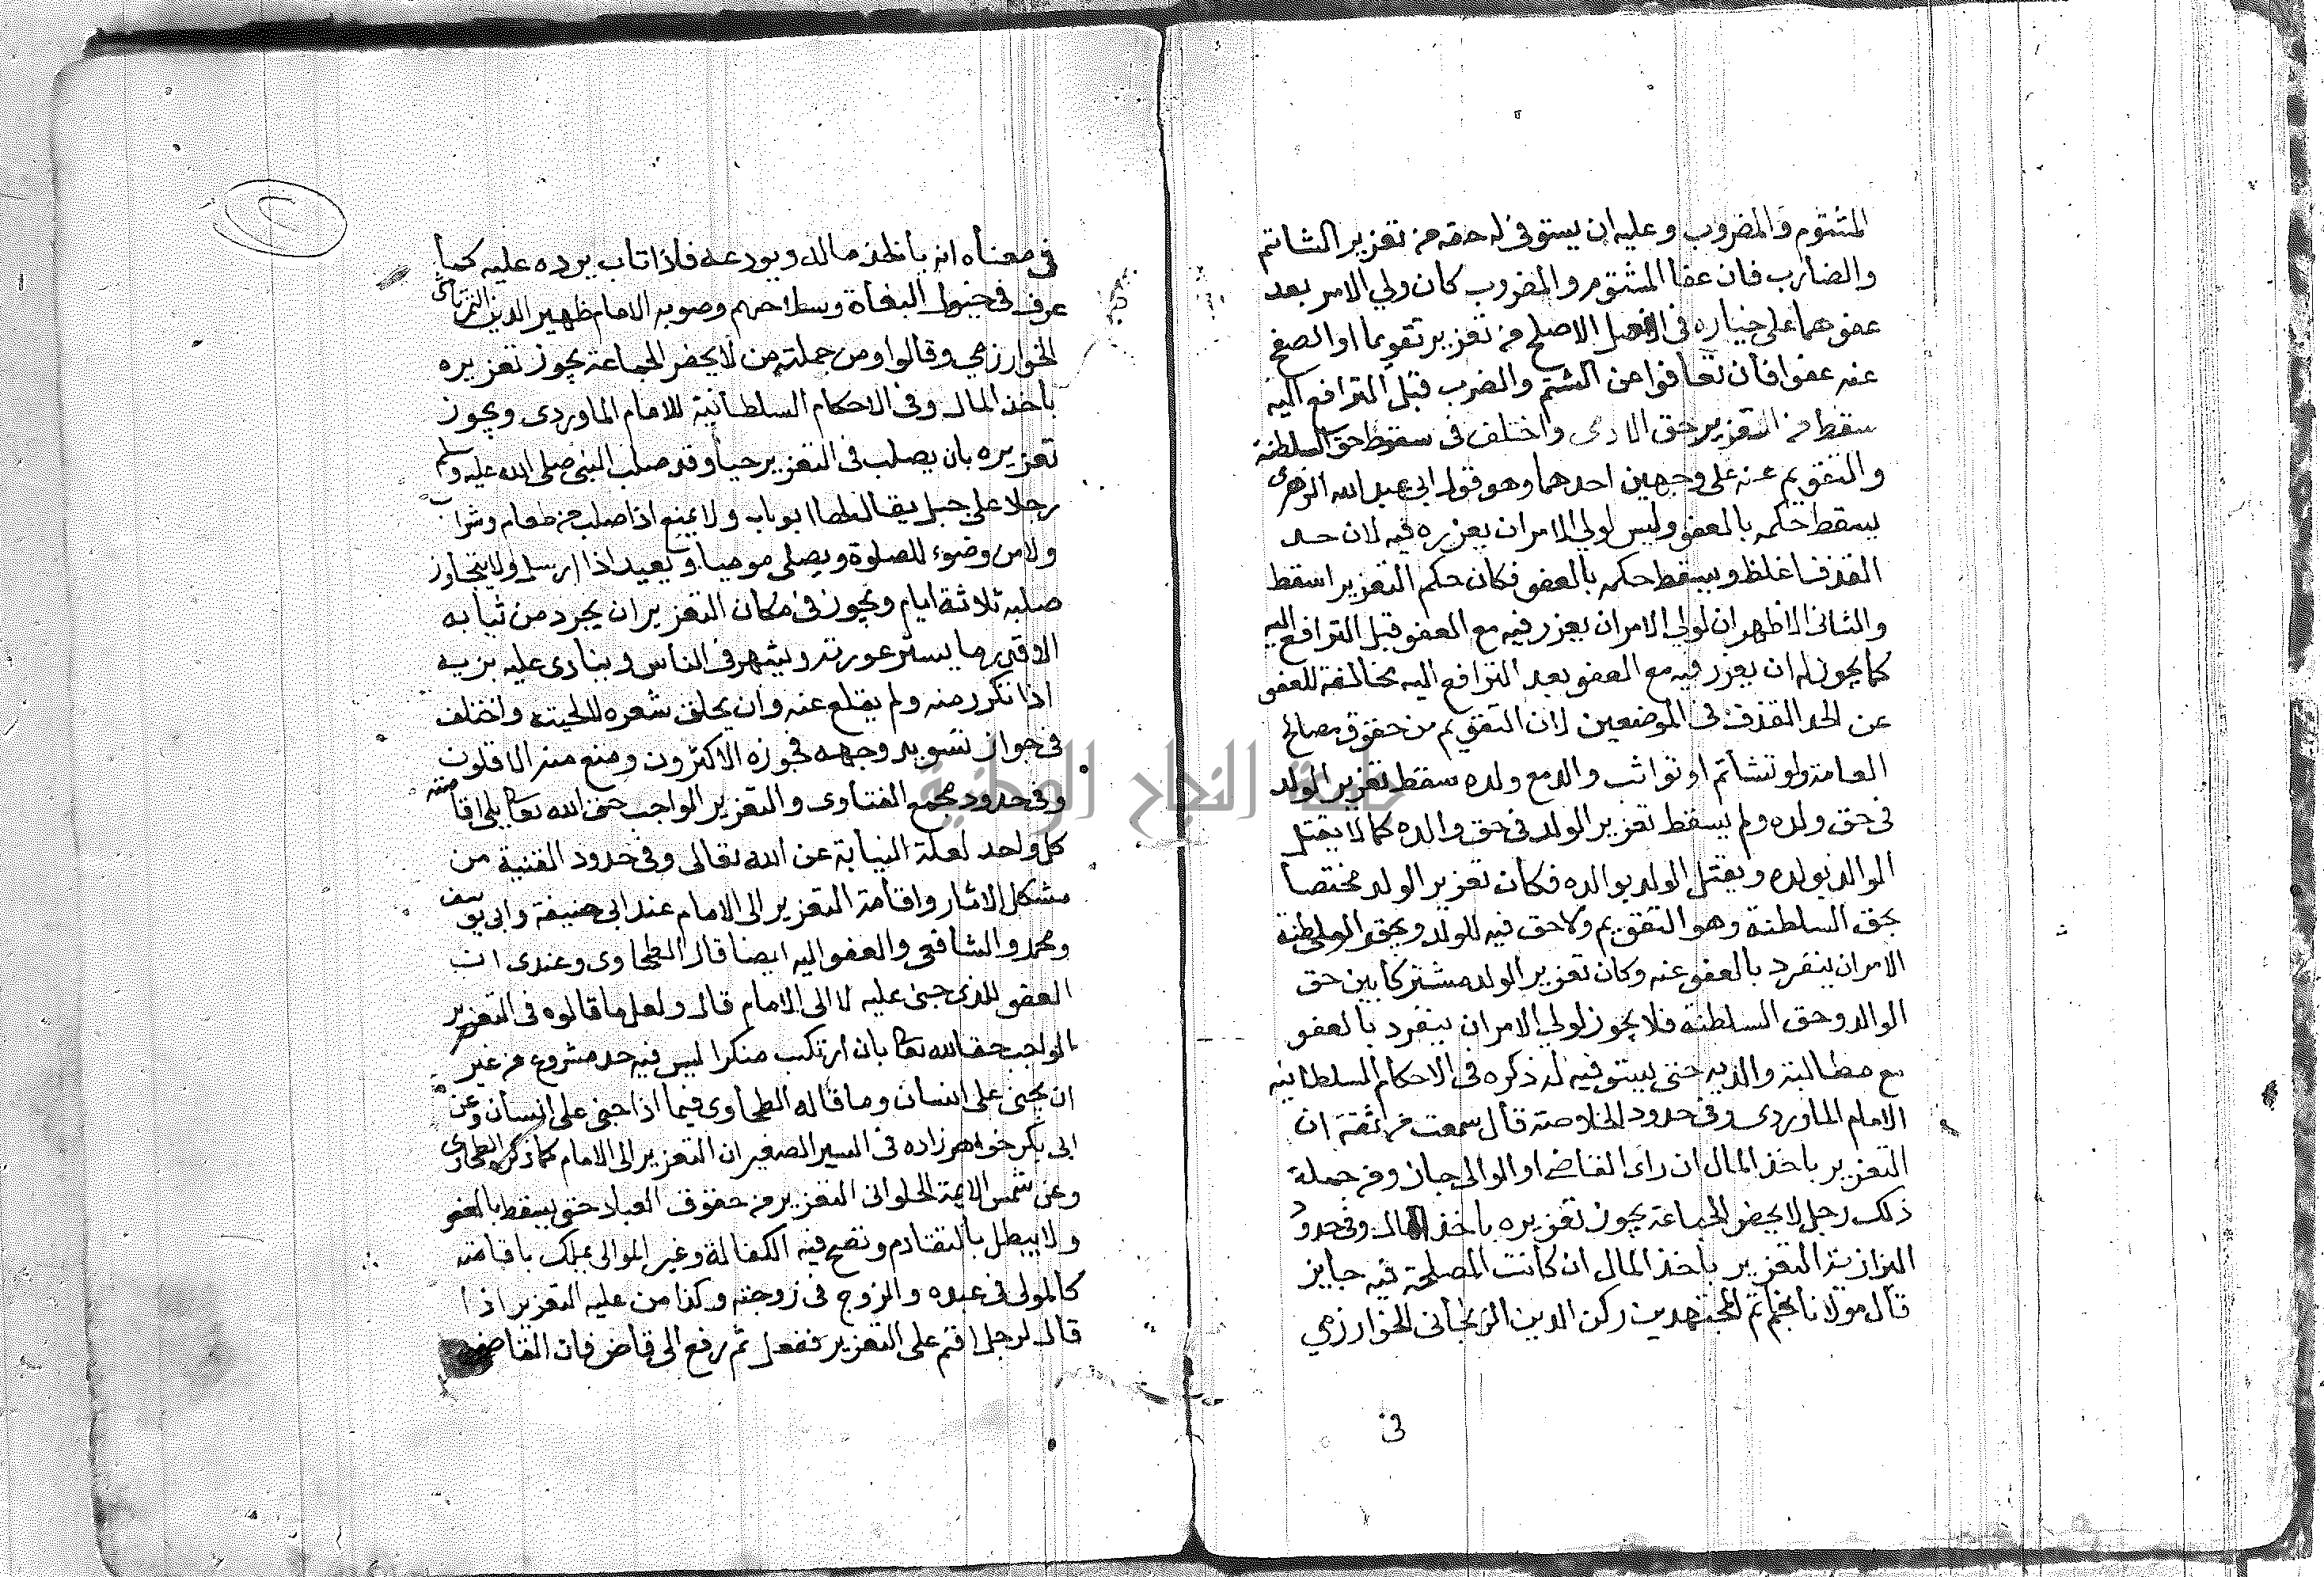 المشتوم والمضروب وعليه ان يستوفى له حقه من تعزير الشاتم
والضارب فان عفا المشتوم والمضروب كان ولي الامر بعد
عفوهما على خياره فى الاصلح من تعزير تقويما او الصفح
عنه عفوا فان تعافوا عن الشتم والضرب قبل الترافع اليه
سقط من التعزير حق الادمى واختلف فى سقوط حق السلطنة
والتقويم عنه على وجهين احدهما وهو قول ابى عبد الله الزهرى
يسقط حكمه بالعفو وليس لولي الامر ان يعزره فيه لان حد
القذف اغلظ ويسقط حكمه بالعفو فكان حكم التعزير اسقط
والثانى الاظهر ان لولي الامر ان يعزر فيه مع العفو قبل الترافع اليه
كما يجوز له ان يعزر فيه مع العفو بعد الترافع اليه مخالفة للعفو
عن الحد القذف فى الموضعين لان التقويم من حقوق مصالح
العامة ولو تشاتم او تواثب والد مع ولده سقط تعزير الولد
فى حق ولده ولم يسقط تعزير الولد فى حق والده كما لا يقتل
الوالد بولده ويقتل الولد بوالده فكان تعزير الولد مختصا
بحق السلطنة وهو التقويم ولا حق فيه للولد ويجوز لولي
الامر ان ينفرد بالعفو عنه وكان تعزير الولد مشتركا بين حق
الوالد وحق السلطنة فلا يجوز لولي الامر ان ينفرد بالعفو
مع مطالبة والديه حتى يستوفيه له ذكره فى الاحكام السلطانيه
الامام الماوردى وفى حدود الخلاصة قال سمعت من ثقة ان
التعزير باخذ المال ان راى القاضى او الوالى جاز ومن جملة
ذلك رجل لا يحضر الجماعة يجوز تعزيره باخذ المال وفى حدود
البزازية التعزير باخذ المال ان كانت المصلحة فيه جايز
قال مولانا المجتهدين ركن الدين الخوارزمي
فى
فى معناه انه ياخذ ماله ويودعه فاذا تاب يرده عليه كما
عرف فى خيول البغاة وسلاحهم وصوبه الامام ظهير الدين التمرتاشى
الخوارزمي وقالوا ومن جملته من لا يحضر الجماعة يجوز تعزيره
باخذ المال وفى الاحكام السلطانية للامام الماوردى ويجوز
تعزيره بان يصلب فى التعزير حيا وقد صلب النبى صلى الله عليه وسلم
رجلا على جبل يقال له ابو ناب ولا يمنع اذا صلب من طعام وشراب
ولا من وضوء للصلوة ويصلى موميا ويعيد اذا ارسل ولا يتجاوز
صلبه ثلاثة ايام ويجوز فى مكان التعزير ان يجرد من ثيابه
الا قدر ما يستر عورته ويشهر فى الناس وينادى عليه بذنبه
اذا تكرر منه ولم يقلع عنه وان يحلق شعره لالحيته واختلف
فى جواز تسويد وجهه فجوزه الاكثرون ومنع منه الاقلون
وفى حدود مجمع الفتاوى والتعزير الواجب حق الله تعالى يلى اقامته
كل واحد لعلة النيابة عن الله تعالى وفى حدود القنية من
مشكل الاثار واقامة التعزير الى الامام عند ابى حنيفة وابى يوسف
ومحمد والشافعى والعفو اليه ايضا قال الطحاوى وعندى ان
العفو للذى جنى عليه لا الى الامام قال ولعل ما قالوه فى التعزير
الواجب حقا لله تعالى بان ارتكب منكرا ليس فيه حد مشروع من غير
ان يجنى على انسان وما قاله الطحاوى فيما اذا جنى على انسان وعن
ابى بكر خواهر زاده فى السير الصغير ان التعزير الى الامام كما ذكره الطحاوى
وعن شمس الايمة الحلوانى التعزير من حقوق العباد حتى يسقط بالعفو
ولا يبطل بالتقادم وتصح فيه الكفالة وغير الوالى يملك باقامته
كالمولى فى عبده والزوج فى زوجته وكذا من عليه التعزير اذا
قال لرجل اقم على التعزير ففعل ثم رفع الى قاض فان القاضى
جامعة النجاح الوطنية